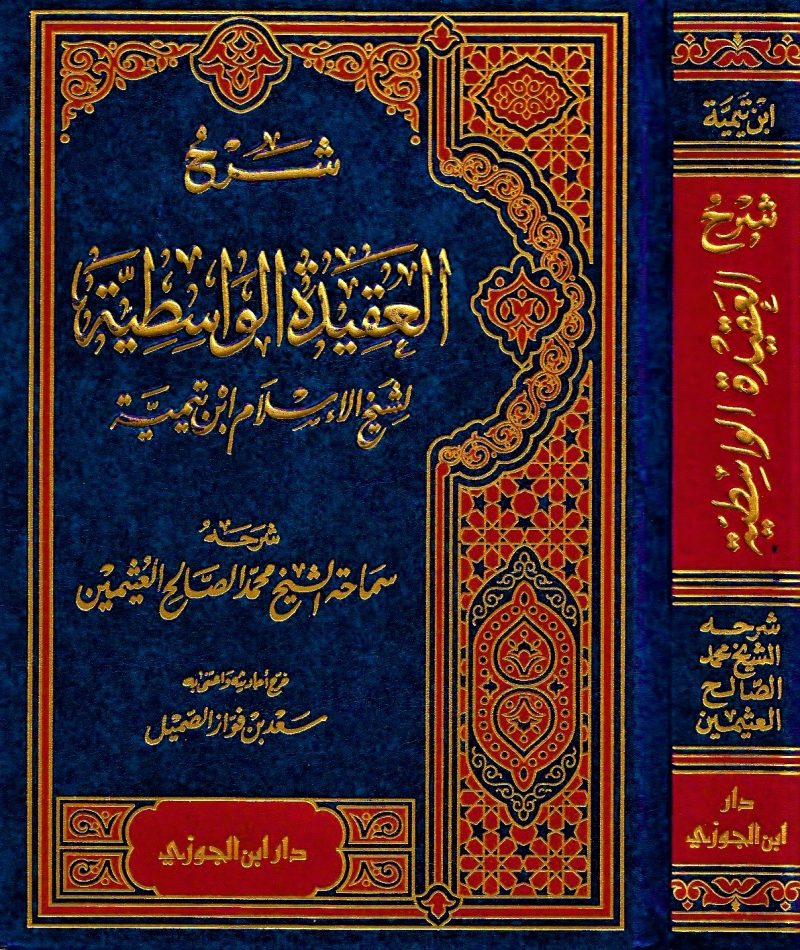 شرح
العقيدة الواسطية
لشيخ الإسلام ابن تيمية
شرحه
سماحة الشيخ محمد الصالح العثيمين
خرج أحاديثه واعتنى به
سعد بن فواز الصميل
دار ابن الجوزي
ابن تيمية
شرح العقيدة الواسطية
شرحه
الشيخ محمد
الصالح
العثيمين
دار
ابن الجوزي